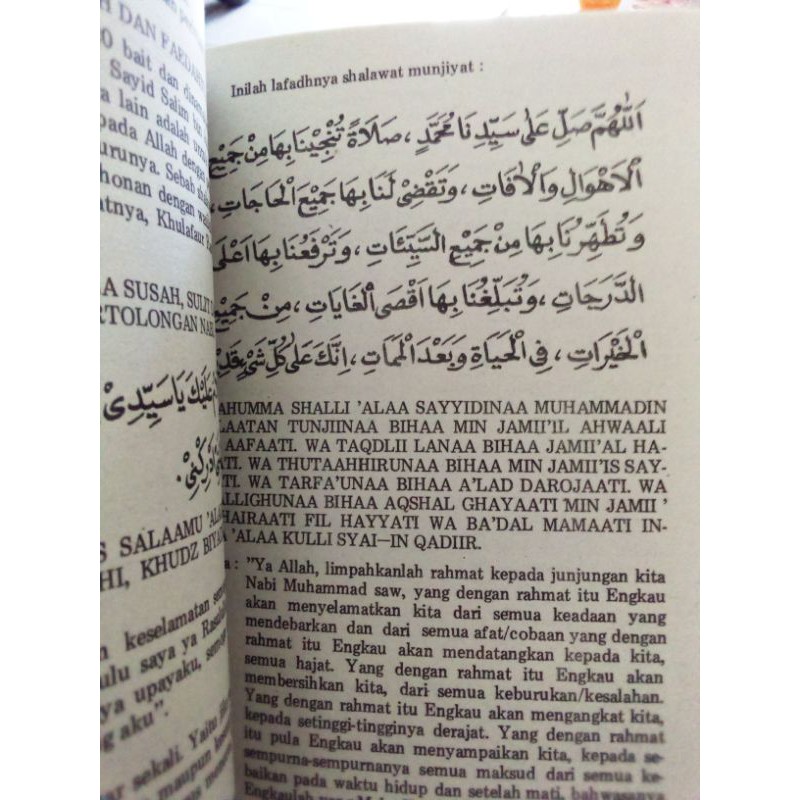 H DAN FAEDAH
0 bait dan
Sayid Salim
a lain adalah
pada Allah dengan
urunya. Sebab
honan dengan
atnya, Khulafaur
A SUSAH, SULIT
RTOLONGAN
عَلَيْكَ يَا سَيِّدِىْ
S SALAAMU 'ALA
HI, KHUDZ
keselamatan
ulu saya ya
ya upayaku,
g aku".
ar sekali. Yaitu
maupun
Inilah lafadhnya shalawat munjiyat :
اَللّٰهُمَّ صَلِّ عَلٰى سَيِّدِنَا مُحَمَّدٍ ، صَلَاةً تُنْجِيْنَا بِهَا مِنْ جَمِيْعِ
الْاَهْوَالِ وَالْاٰفَاتِ ، وَتَقْضِىْ لَنَا بِهَا جَمِيْعَ الْحَاجَاتِ ،
وَتُطَهِّرُنَا بِهَا مِنْ جَمِيْعِ السَّيِّئَاتِ ، وَتَرْفَعُنَا بِهَا اَعْلَى
الدَّرَجَاتِ ، وَتُبَلِّغُنَا بِهَا اَقْصَى الْغَايَاتِ ، مِنْ جَمِيْعِ
الْخَيْرَاتِ ، فِى الْحَيَاةِ وَبَعْدَ الْمَمَاتِ ، اِنَّكَ عَلٰى كُلِّ شَىْءٍ قَدِ
AHUMMA SHALLI 'ALAA SAYYIDINAA MUHAMMADIN
LAATAN TUNJIINAA BIHAA MIN JAMII'IL AHWAALI
AAFAATI. WA TAQDLII LANAA BIHAA JAMII'AL HA-
ATI. WA THUTAAHHIRUNAA BIHAA MIN JAMII'IS SAY-
TI. WA TARFA'UNAA BIHAA A'LAD DAROJAATI. WA
ALLIGHUNAA BIHAA AQSHAL GHAYAATI MIN JAMII '
HAIRAATI FIL HAYYATI WA BA'DAL MAMAATI IN-
'ALAA KULLI SYAI—IN QADIIR.
a : "Ya Allah, limpahkanlah rahmat kepada junjungan kita
Nabi Muhammad saw, yang dengan rahmat itu Engkau
akan menyelamatkan kita dari semua keadaan yang
mendebarkan dan dari semua afat/cobaan yang dengan
rahmat itu Engkau akan mendatangkan kepada kita,
semua hajat. Yang dengan rahmat itu Engkau akan
membersihkan kita, dari semua keburukan/kesalahan.
Yang dengan rahmat itu Engkau akan mengangkat kita,
kepada setinggi-tingginya derajat. Yang dengan rahmat
itu pula Engkau akan menyampaikan kita, kepada se-
sempurna-sempurnanya semua maksud dari semua ke-
baikan pada waktu hidup dan setelah mati, bahwasanya